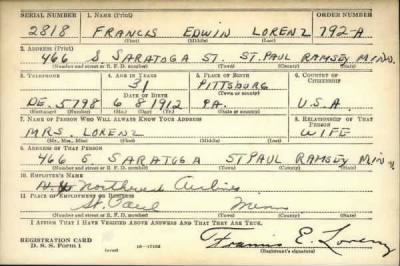 SERIAL NUMBER 1. NAME (Print) ORDER NUMBER
2818 FRANCIS EDWIN LORENZ 792-A
(First) (Middle) (Last)
2. ADDRESS (Print)
466 S SARATOGA ST. ST. PAUL RAMSEY MINN.
(Number and street or R. F. D. number) (Town) (County) (State)
3. TELEPHONE 4. AGE IN YEARS 5. PLACE OF BIRTH 6. COUNTRY OF CITIZENSHIP
31 PITTSBURG
DATE OF BIRTH (Town or county)
DE. 5798 6 8 1912 PA. U.S.A.
(Exchange) (Number) (Mo.) (Day) (Yr.) (State or country)
7. NAME OF PERSON WHO WILL ALWAYS KNOW YOUR ADDRESS 8. RELATIONSHIP OF THAT PERSON
MRS. LORENZ WIFE
(Mr., Mrs., Miss) (First) (Middle) (Last)
9. ADDRESS OF THAT PERSON
466 S. SARATOGA ST PAUL RAMSEY MINN
(Number and street or R. F. D. number) (Town) (County) (State)
10. EMPLOYER'S NAME
Northwest Airlines
11. PLACE OF EMPLOYMENT OR BUSINESS
St. Paul Minn
(Number and street or R. F. D. number) (Town) (County) (State)
I AFFIRM THAT I HAVE VERIFIED ABOVE ANSWERS AND THAT THEY ARE TRUE.
REGISTRATION CARD
D. S. S. FORM 1
Francis E. Lorenz
(Registrant's signature)